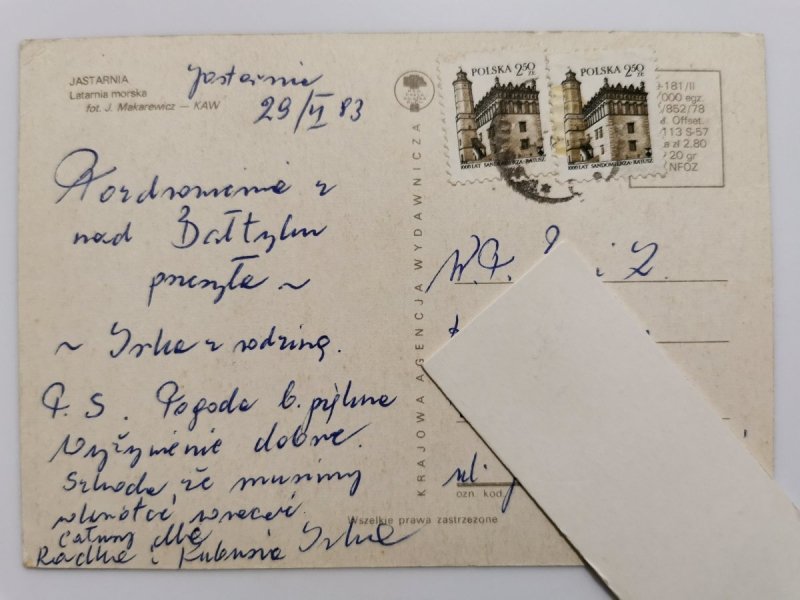 JASTARNIA
Latarnia morska
fot. J. Makarewicz — KAW
Jastarnia
29/VI 83
Pozdrowienia z
nad Bałtyku
przesyła ~
~ Irka z rodziną.
P. S. Pogoda b. piękna
Wyżywienie dobre.
Szkoda, że musimy
wkrótce wracać.
Całusy dla
Radka i Kubusia Irka
KRAJOWA AGENCJA WYDAWNICZA
POLSKA 2,50 ZŁ
1000 LAT SANDOMIERZA-RATUSZ
POLSKA 2,50 ZŁ
1000 LAT SANDOMIERZA-RATUSZ
-181/II
000 egz.
/852/78
Offset.
113 S-57
zł 2.80
20 gr
NFOZ
W.P.
i Z.
ul.
ozn. kod.
Wszelkie prawa zastrzeżone